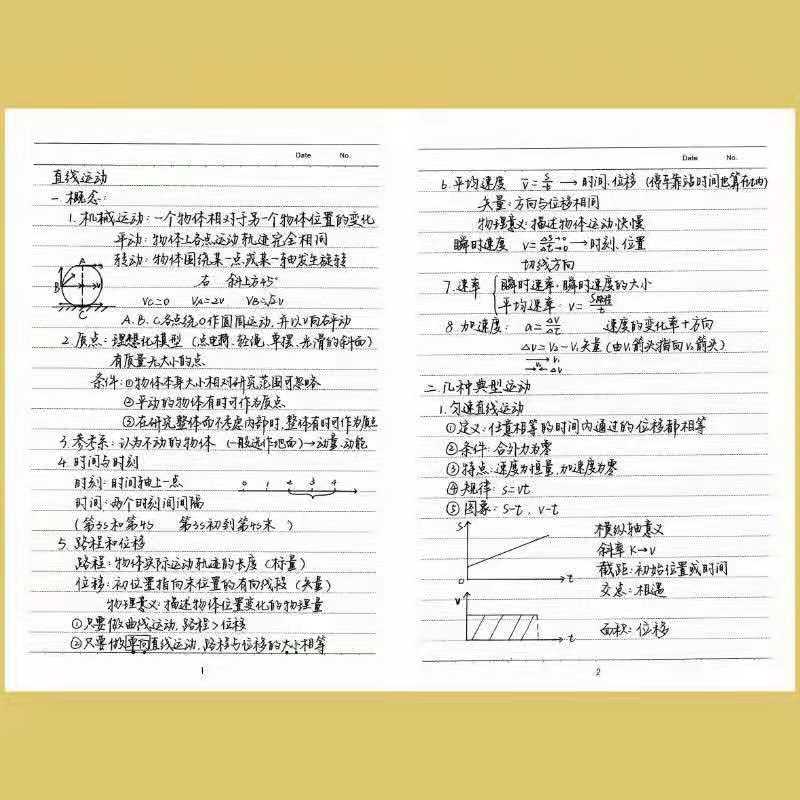 Date No.
直线运动
一.概念:
1.机械运动:一个物体相对于另一个物体位置的变化
平动:物体上各点运动轨迹完全相同
转动:物体围绕某一点或某一轴发生旋转
A
B
C
右 斜上方45°
Vc=0 VA=2V VB=√2V
A.B.C各点绕O作圆周运动,并以V向右平动
2.质点:理想化模型(点电荷.轻绳.单摆.光滑的斜面)
有质量无大小的点
条件:①物体本身大小相对研究范围可忽略
②平动的物体有时可作为质点
③在研究整体而不考虑内部时,整体有时可作为质点
3.参考系:认为不动的物体(一般选作地面)→动量.动能
4.时间与时刻
时刻:时间轴上一点
0 1 2 3 4
时间:两个时刻间间隔
(第3s和第4s 第3s初到第4s末 )
5.路程和位移
路程:物体实际运动轨迹的长度(标量)
位移:初位置指向末位置的有向线段(矢量)
物理意义:描述物体位置变化的物理量
①只要做曲线运动,路程>位移
②只要做单向直线运动,路程与位移的大小相等
1
Date No.
6.平均速度 v̄=s/t→时间.位移(停车靠站时间也算在t内)
矢量:方向与位移相同
物理意义:描述物体运动快慢
瞬时速度 v=Δs→0/Δt→0→时刻.位置
切线方向
7.速率 瞬时速率:瞬时速度的大小
平均速率:v=S路程/t
8.加速度: a=ΔV/Δt 速度的变化率+方向
ΔV=V₂-V₁矢量(由V₁箭头指向V₂箭头)
V₁
V₂ ΔV
二.几种典型运动
1.匀速直线运动
①定义:任意相等的时间内通过的位移都相等
②条件:合外力为零
③特点:速度为恒量,加速度为零
④规律:s=vt
⑤图象:s-t、v-t
S
0
t
横纵轴意义
斜率K→V
截距:初始位置或时间
交点:相遇
V
t
面积:位移
2